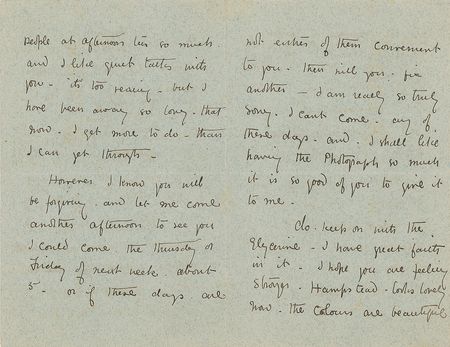 people at afternoon teas so much.
and I like quiet talks with
you - its too - but I
have been away so long - that
now - I get more to do - than
I can get through -
However I know you will
be forgiving - and let me come
another afternoon to see you
I could come the Thursday or
Friday of next week about
5 - or if these days are
not either of them convenient
to you - then will you fix
another - I am really so truly
sorry - I can't come - any of
these days - and - I shall like
having the Photograph so much
it is so good of you to give it
to me -
do. keep on with the
Glycerine - I have great faith
in it - I hope you are feeling
stronger - Hampstead - looks lovely
now - the colours are beautiful